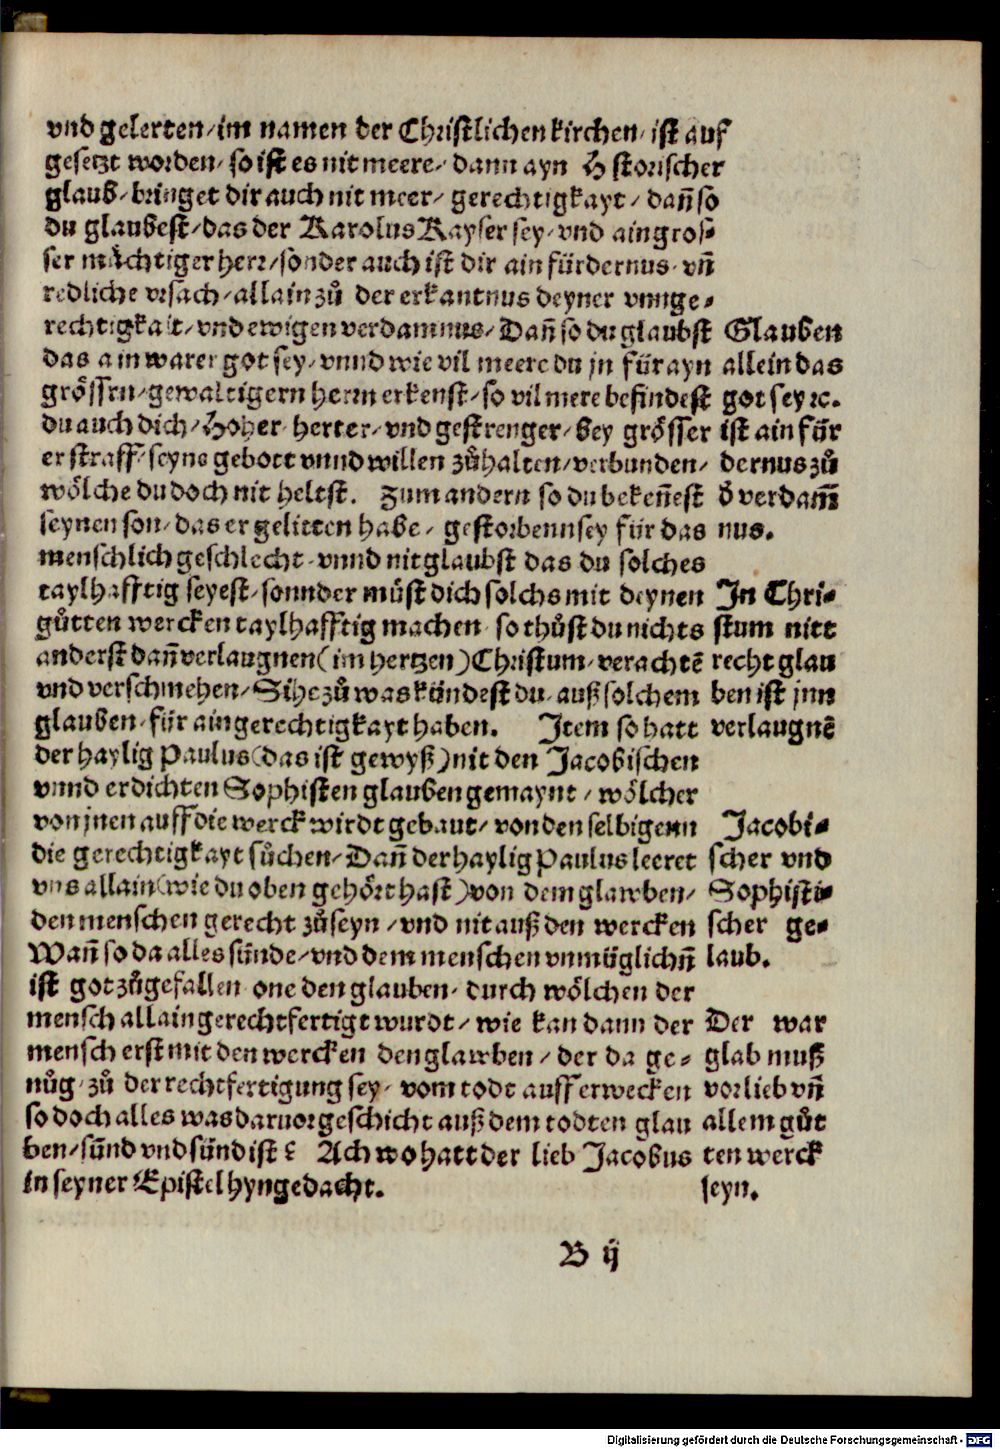 vnd gelerten/im namen der Christlichen kirchen/ist auf
gesetzt worden/so ist es nit meere/dann ayn H storischer
glaub/bringet dir auch nit meer/gerechtigkayt/dañ so
du glaubest/das der Karolus Kayser sey/vnd ain gros-
ser mächtiger herr/sonder auch ist dir ain fürdernus/vñ
redliche vrsach/allain zů der erkantnus deyner vnnge-
rechtigkait/vnd ewigen verdamnus/Dañ so du glaubst
das ain warer got sey/vnnd wie vil meere du jn für ayn
grössrn/gewaltigern herrn erkenst/so vil mere befindest
du auch dich/Hoher/herter/vnd gestrenger/bey grösser
er straff/seyne gebott vnnd willen zůhalten/verbunden/
wölche du doch nit heltst. Zum andern so du bekeñest
seynen son/das er gelitten habe/gestorbenn sey für das
menschlich geschlecht/vnnd nit glaubst das du solches
taylhafftig seyest/sonnder můst dich solchs mit deynen
gůtten wercken taylhafftig machen/so thůst du nichts
anderst dañ verlaugnen (im hertzen) Christum/verachtē
vnd verschmehen/Sihe zů was kündest du/auß solchem
glauben/für ain gerechtigkayt haben. Item so hatt
der haylig Paulus (das ist gewyß) nit den Jacobischen
vnnd erdichten Sophisten glauben gemaynt/wölcher
von jnen auff die werck wirdt gebaut/von den selbigenn
die gerechtigkayt sůchen/Dañ der haylig Paulus leeret
vns allain (wie du oben gehört hast) von dem glawben/
den menschen gerecht zůseyn/vnd nit auß den wercken
Wañ so da alles sünde/vnd dem menschen vnmüglichñ
ist got zůgefallen one den glauben/durch wölchen der
mensch allain gerechtfertigt wurdt/wie kan dann der
mensch erst mit den wercken den glawben/der da ge-
nůg/zů der rechtfertigung sey/vom todt aufferwecken
so doch alles was daruor geschicht auß dem todten glau
ben/sünd vnd sünd ist? Ach wo hatt der lieb Jacobus
in seyner Epistel hyn gedacht.
Glauben
allein das
got sey ꝛc.
ist ain für
dernus zů
ð verdam̄
nus.
In Chri-
stum nitt
recht glau
ben ist jnn
verlaugnē
Jacobi-
scher vnd
Sophisti-
scher ge-
laub.
Der war
glab muß
vor lieb vñ
allem gůt
ten werck
seyn.
B ij
Digitalisierung gefördert durch die Deutsche Forschungsgemeinschaft - DFG